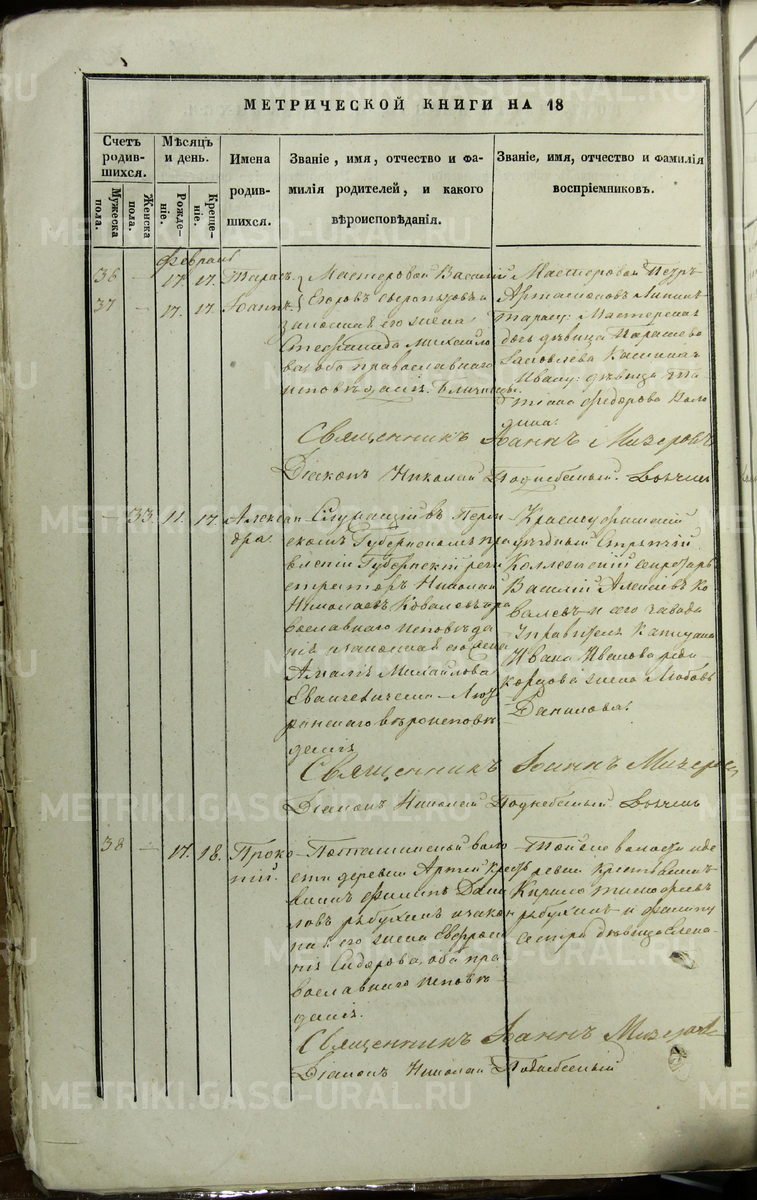 МЕТРИЧЕСКОЙ КНИГИ НА 18
Счетъ родив- шихся.
Мѣсяцъ и день.
Имена родив- шихся.
Званіе, имя, отчество и фа-
милія родителей, и какого
вѣроисповѣданія.
Званіе, имя, отчество и фамилія
воспріемниковъ.
Мужеска пола.
Женска пола.
Рожде- ніе.
Креще- ніе.
февраль
36 — 17. 17. Тарасъ. Мастеровой Василій
37 — 17. 17. Іоаннъ. Егоровъ
законная его жена
Стефанида Михайло
ва, оба православнаго
исповѣданія. Близнецы.
Мастеровой Петръ
Артамоновъ
Тарасу: Мастерская
дочь дѣвица Парасковья
Яковлева
Ивану: дѣвица Та
тіана Федорова Воло
дина.
Священникъ Іоаннъ Мизеровъ
Діаконъ Николай Поднебесный.
— 33. 11. 17. Александра.
Служащій въ Перм
скомъ Губернскомъ пра
вленіи Губернскій реги
страторъ Николай
Николаевъ Ковалевъ пра
вославнаго исповѣда
нія и законная его жена
Амалія Михайлова
Евангелическо-Люте
ранскаго вѣроисповѣ
данія
Красноуфимскій
уѣздный Стряпчій
Коллежскій секретарь
Василій Алексѣевъ Ко
валевъ и сего завода
Управителя Капитана
Ивана Иванова
жена Любовь
Данилова.
Священникъ Іоаннъ Мизеровъ
Діаконъ Николай Поднебесный
38 — 17. 18. Проко
пій.
Поташинской воло
сти деревни Артей Кресть
янинъ Филипъ Дани
ловъ Рябухинъ и закон
ная его жена Евфроси
нія Сидорова, оба пра
вославнаго исповѣ
данія.
Той же волости и де
ревни крестьянинъ
Кирило Тимофеевъ
Рябухинъ и Филипу
сестра дѣвица Елена
Священникъ Іоаннъ Мизеровъ
Діаконъ Николай Поднебесный
METRIKI.GASO-URAL.RU